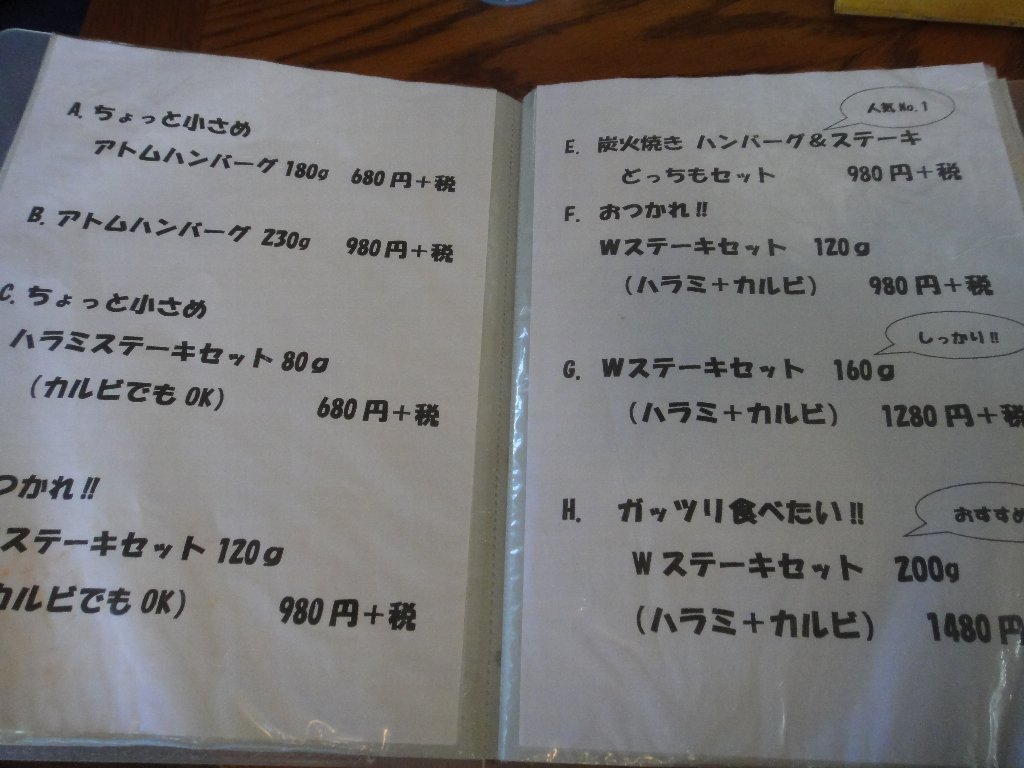 A. ちょっと小さめ
アトムハンバーグ 180g 680円+税
B. アトムハンバーグ 230g 980円+税
C. ちょっと小さめ
ハラミステーキセット 80g
(カルビでもOK)
680円+税
つかれ!!
ステーキセット 120g
カルビでもOK)
980円+税
人気No.1
E. 炭火焼き ハンバーグ&ステーキ
どっちもセット 980円+税
F. おつかれ!!
Wステーキセット 120g
(ハラミ+カルビ) 980円+税
しっかり!!
G. Wステーキセット 160g
(ハラミ+カルビ) 1280円+税
おすすめ
H. ガッツリ食べたい!!
Wステーキセット 200g
(ハラミ+カルビ) 1480円